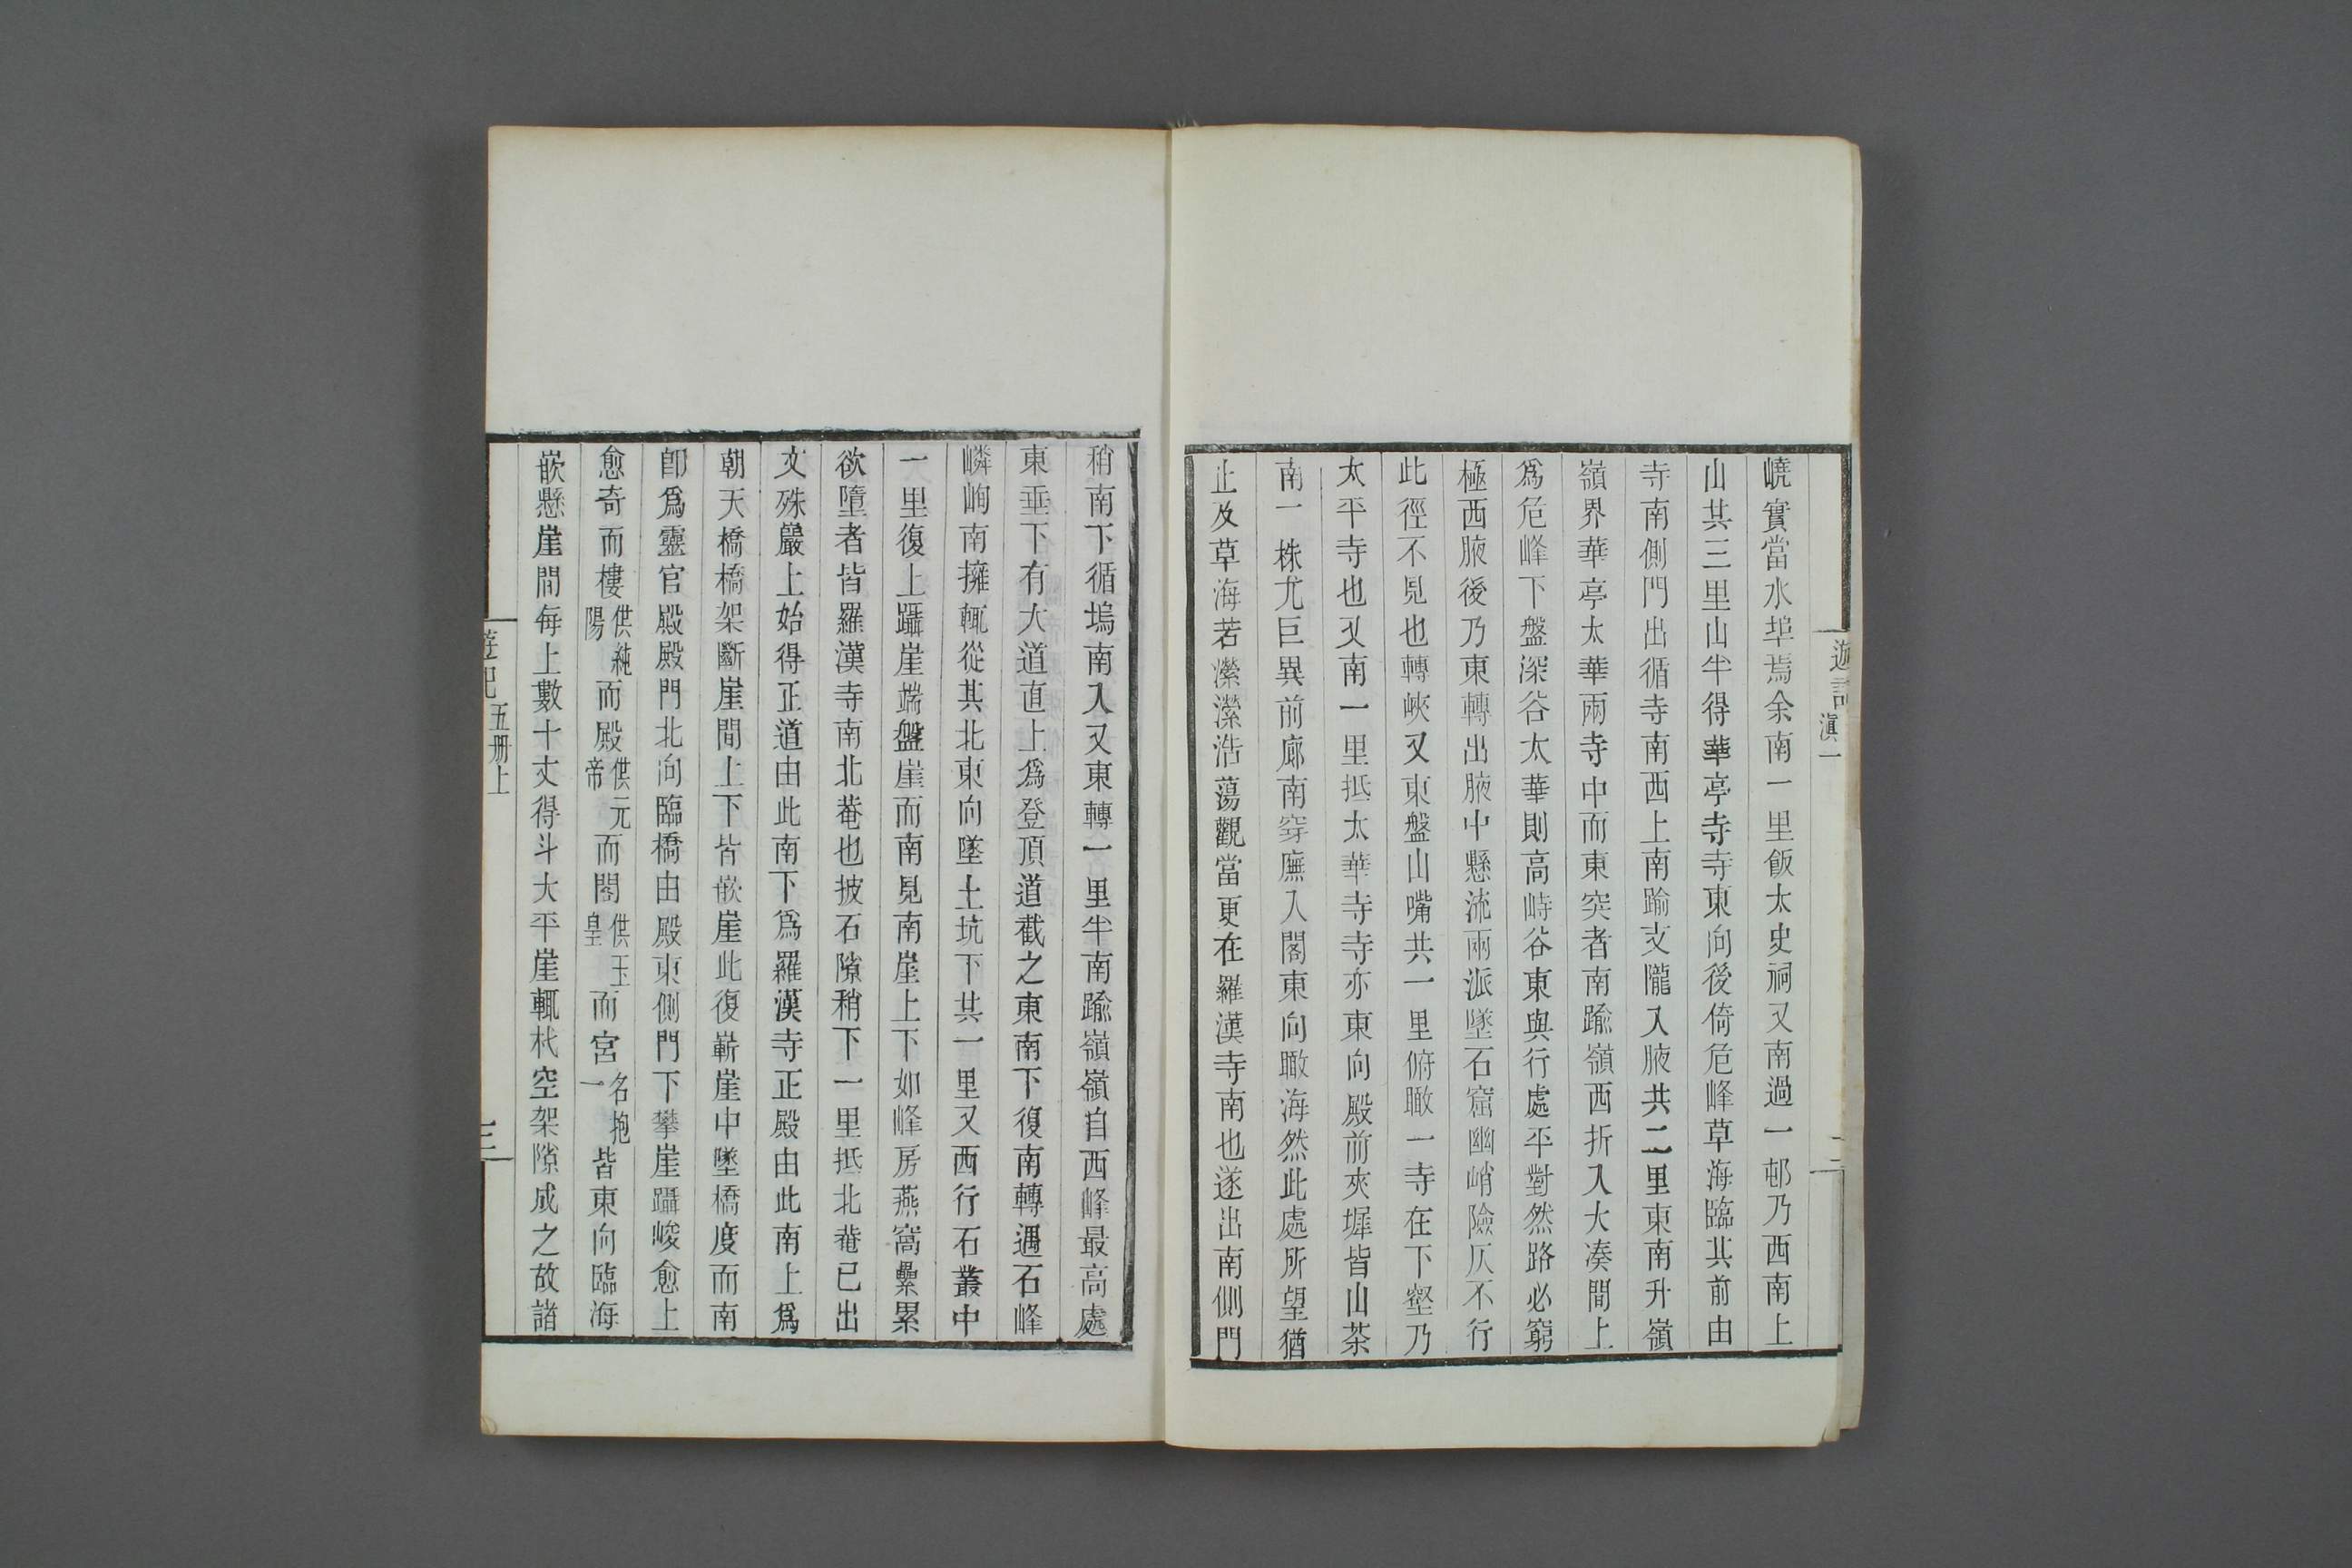 遊記 滇一 二
嶢實當水埠焉余南一里飯太史祠又南過一邨乃西南上
山共三里山半得華亭寺寺東向後倚危峰草海臨其前由
寺南側門出循寺南西上南踰支隴入腋共二里東南升嶺
嶺界華亭太華兩寺中而東突者南踰嶺西折入大湊間上
爲危峰下盤深谷太華則高峙谷東與行處平對然路必窮
極西腋後乃東轉出腋中懸流兩派墜石窟幽峭險仄不行
此徑不見也轉峽又東盤山嘴共一里俯瞰一寺在下壑乃
太平寺也又南一里抵太華寺寺亦東向殿前夾墀皆山茶
南一株尤巨異前廊南穿廡入閣東向瞰海然此處所望猶
止及草海若瀠瀠浩蕩觀當更在羅漢寺南也遂出南側門
稍南下循塢南入又東轉一里半南踰嶺嶺自西峰最高處
東垂下有大道直上爲登頂道截之東南下復南轉遇石峰
嶙峋南擁輒從其北東向墜土坑下共一里又西行石叢中
一里復上躡崖端盤崖而南見南崖上下如峰房燕窩纍累
欲墮者皆羅漢寺南北菴也披石隙稍下一里抵北菴已出
文殊巖上始得正道由此南下爲羅漢寺正殿由此南上爲
朝天橋橋架斷崖間上下皆嵌崖此復嶄崖中墜橋度而南
卽爲靈官殿殿門北向臨橋由殿東側門下攀崖躡峻愈上
愈奇而樓供純陽而殿供元帝而閣供玉皇而宮名抱一皆東向臨海
嵌懸崖間每上數十丈得斗大平崖輒杙空架隙成之故諸
遊記 五册上 三